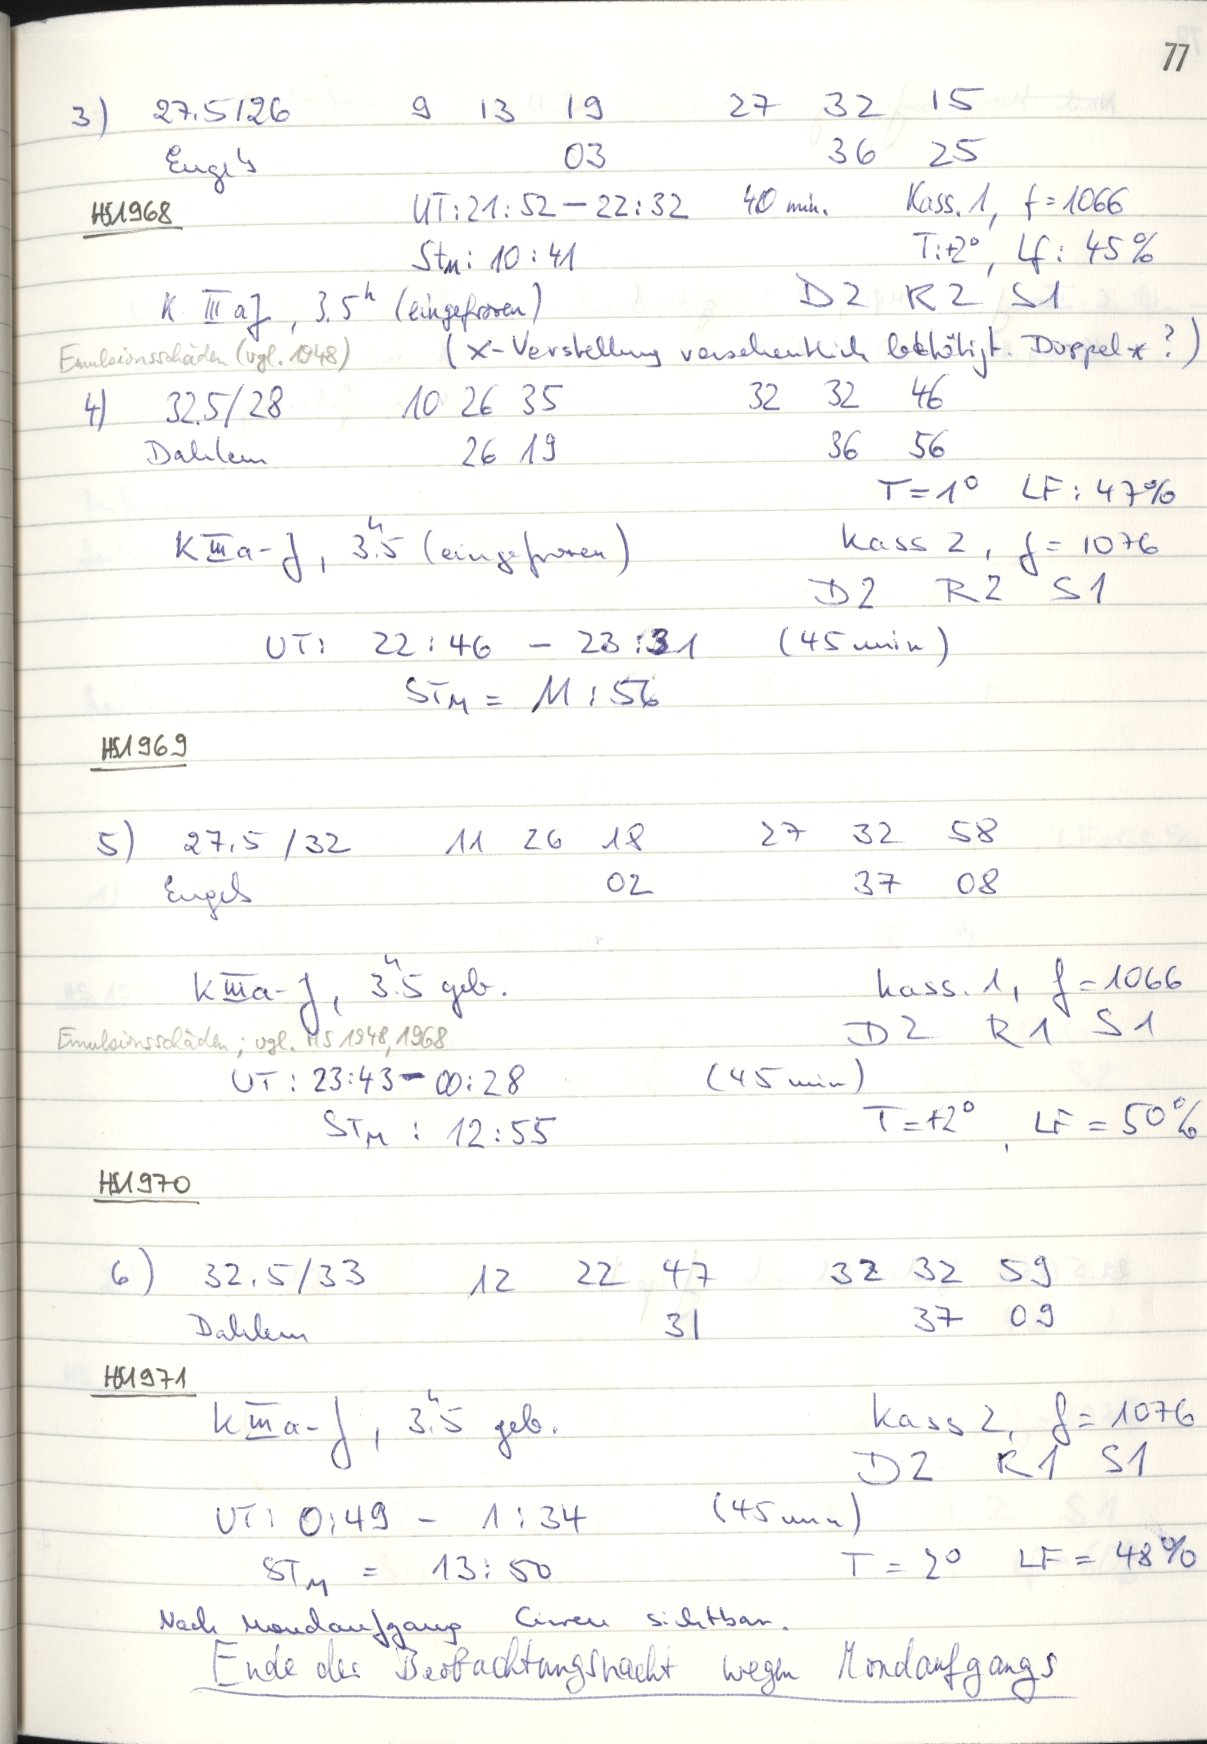 77
3) 27.5/26 9 13 19 27 32 15
Engels 03 36 25
HS1968 UT: 21:52 — 22:32 40 min. Kass. 1, f = 1066
STM: 10:41 T: +2°, Lf: 45%
K III aJ, 3.5h (eingefroren) D2 R2 S1
Emulsionsschäden (vgl. 1948) (x-Verstellung versehentlich betätigt. Doppel* ?)
4) 32.5/28 10 26 35 32 32 46
Dahlem 26 19 36 56
T = 1° LF: 47%
K III a-J, 3h.5 (eingefroren) Kass 2, f = 1076
D2 R2 S1
UT: 22:46 — 23:31 (45 min)
STM = 11:56
HS1969
5) 27.5/32 11 26 18 27 32 58
Engels 02 37 08
K III a-J, 3h.5 geb. Kass. 1, f = 1066
D2 R1 S1
Emulsionsschäden; vgl. HS 1948, 1968
UT: 23:43 — 00:28 (45 min)
STM: 12:55 T = +2°, LF = 50%
HS1970
6) 32.5/33 12 22 47 32 32 59
Dahlem 31 37 09
HS1971
K III a-J, 3h.5 geb. Kass 2, f = 1076
D2 R1 S1
UT: 0:49 — 1:34 (45 min)
STM = 13:50 T = 2° LF = 48%
Nach Mondaufgang Cirren sichtbar.
Ende der Beobachtungsnacht wegen Mondaufgangs